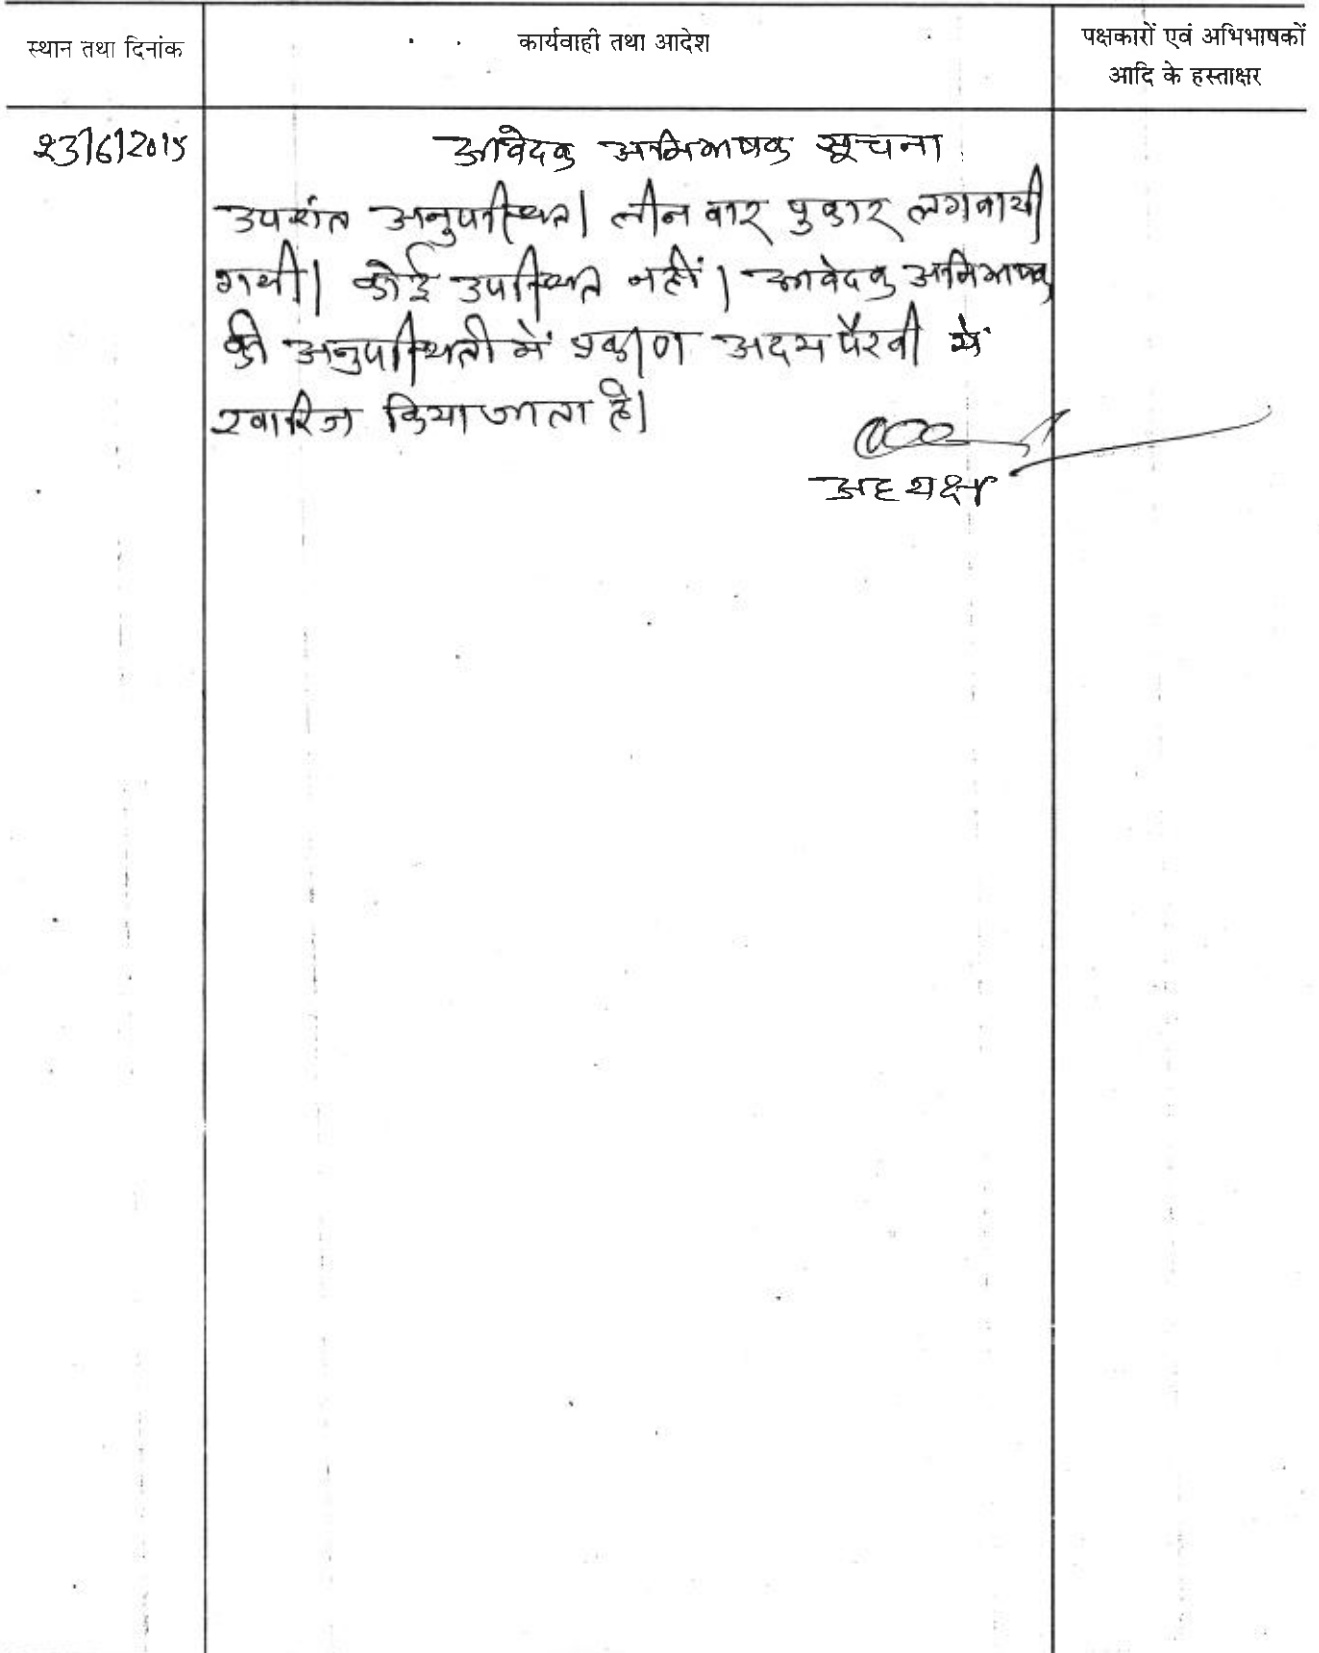 स्थान तथा दिनांक
कार्यवाही तथा आदेश
पक्षकारों एवं अभिभाषकों
आदि के हस्ताक्षर
23/6/2015
आवेदक अभिभाषक सूचना
उपरांत अनुपस्थित। तीन बार पुकार लगवायी
गयी। कोई उपस्थित नहीं। आवेदक अभिभाषक
की अनुपस्थिती में प्रकरण अदम पैरवी में
खारिज किया जाता है।
अध्यक्ष